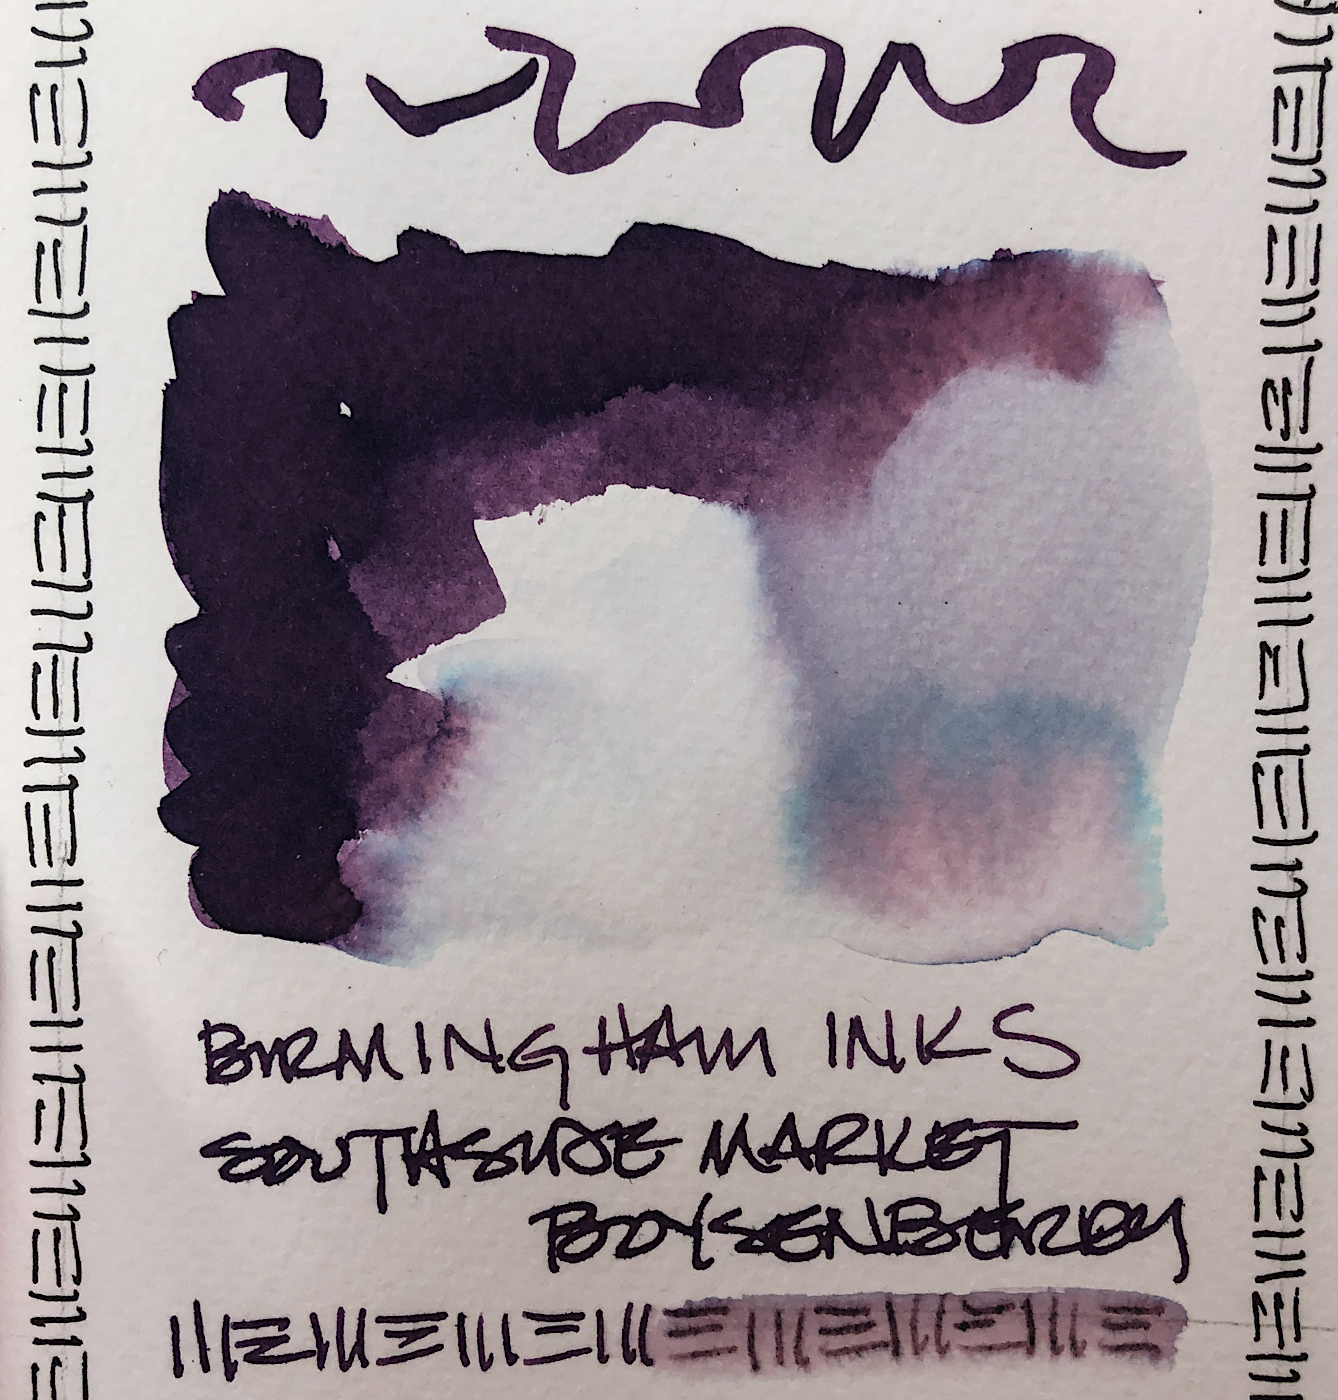 BIRMINGHAM INKS
SOUTHSIDE MARKET
BOYSENBERRY